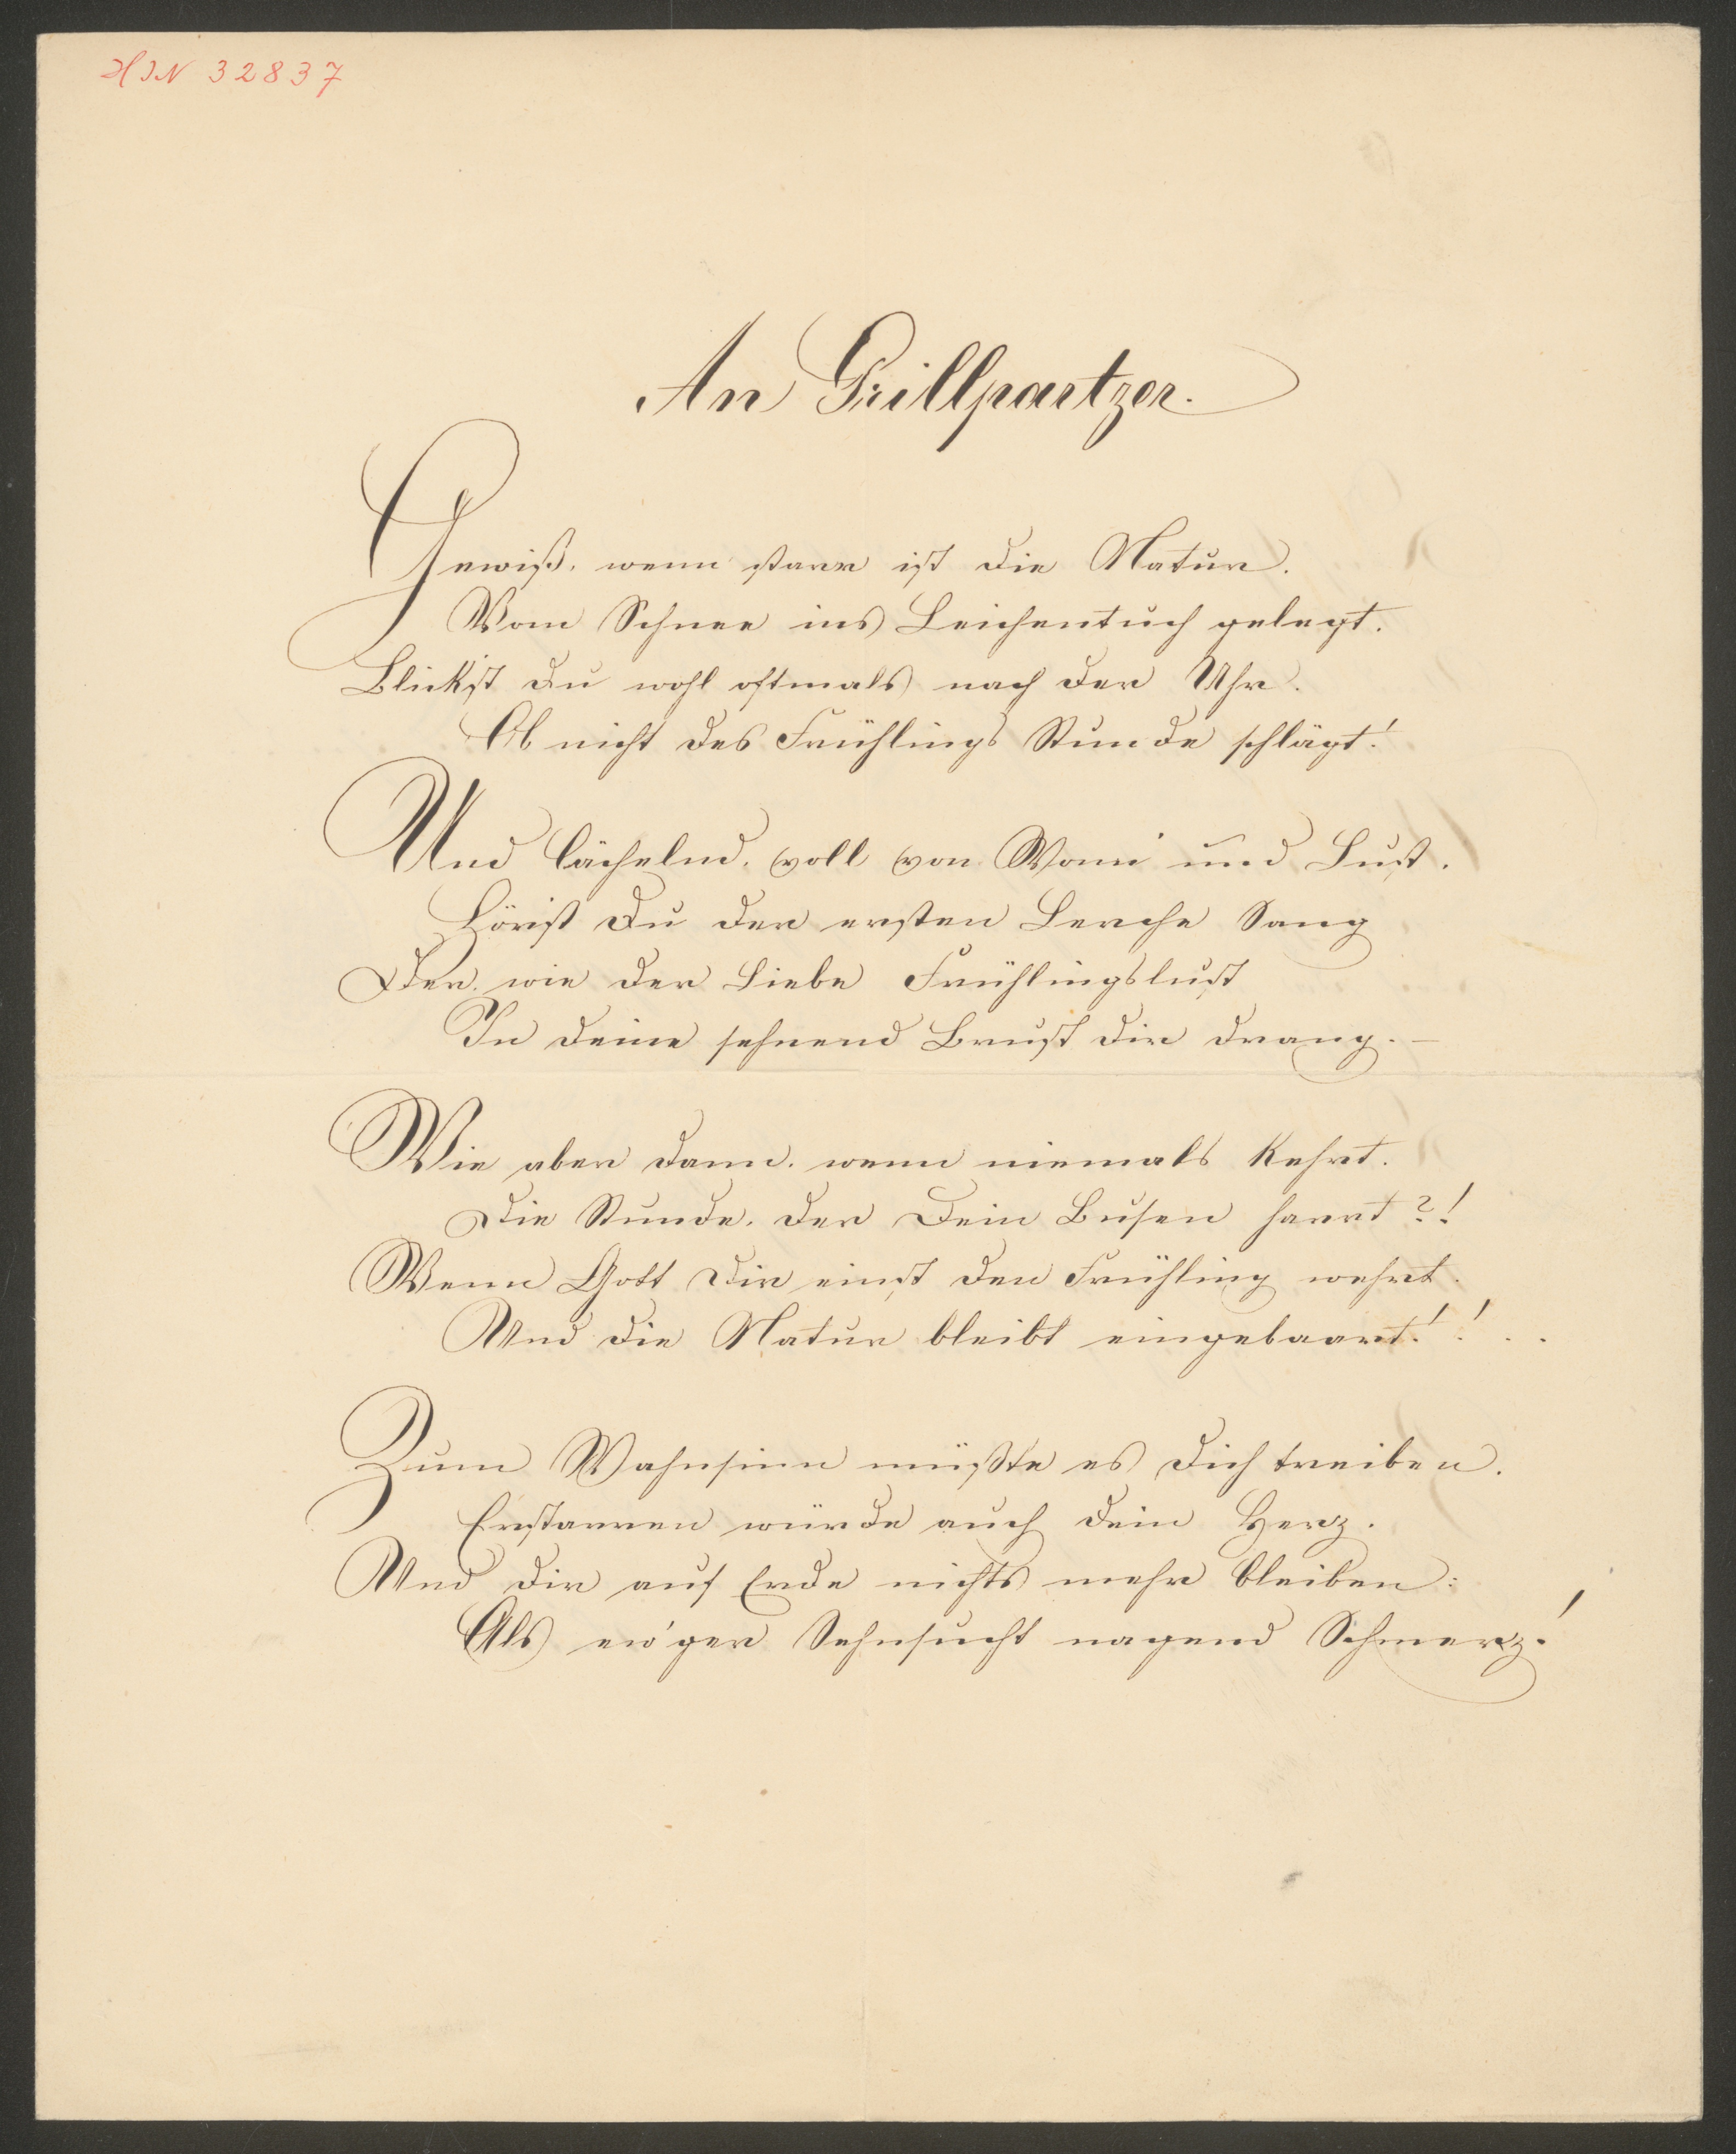 HIN 32837
An Grillpartzer.
Gewiß, wenn starr ist die Natur.
Vom Schnee ins Leichentuch gelegt.
Blickst du wohl oftmals nach der Uhr.
Ob nicht des Frühlings Stunde schlägt!
Und lächelnd, voll von Wonn' und Lust.
Hörist Du der ersten Lerche Sang
Der, wie der Liebe Frühlingslust
In deine sehnend Brust dir drang. —
Wie aber dann, wenn niemals kehrt.
Die Stunde, der Dein Busen harrt?!
Wenn Gott Dir einst den Frühling wehrt.
Und die Natur bleibt eingebaart!!..
Zum Wahnsinn müßte es Dich treiben.
Erstarren würde auch dein Herz.
Und dir auf Erde nichts mehr bleiben:
Als ew'ger Sehnsucht nagend Schmerz!